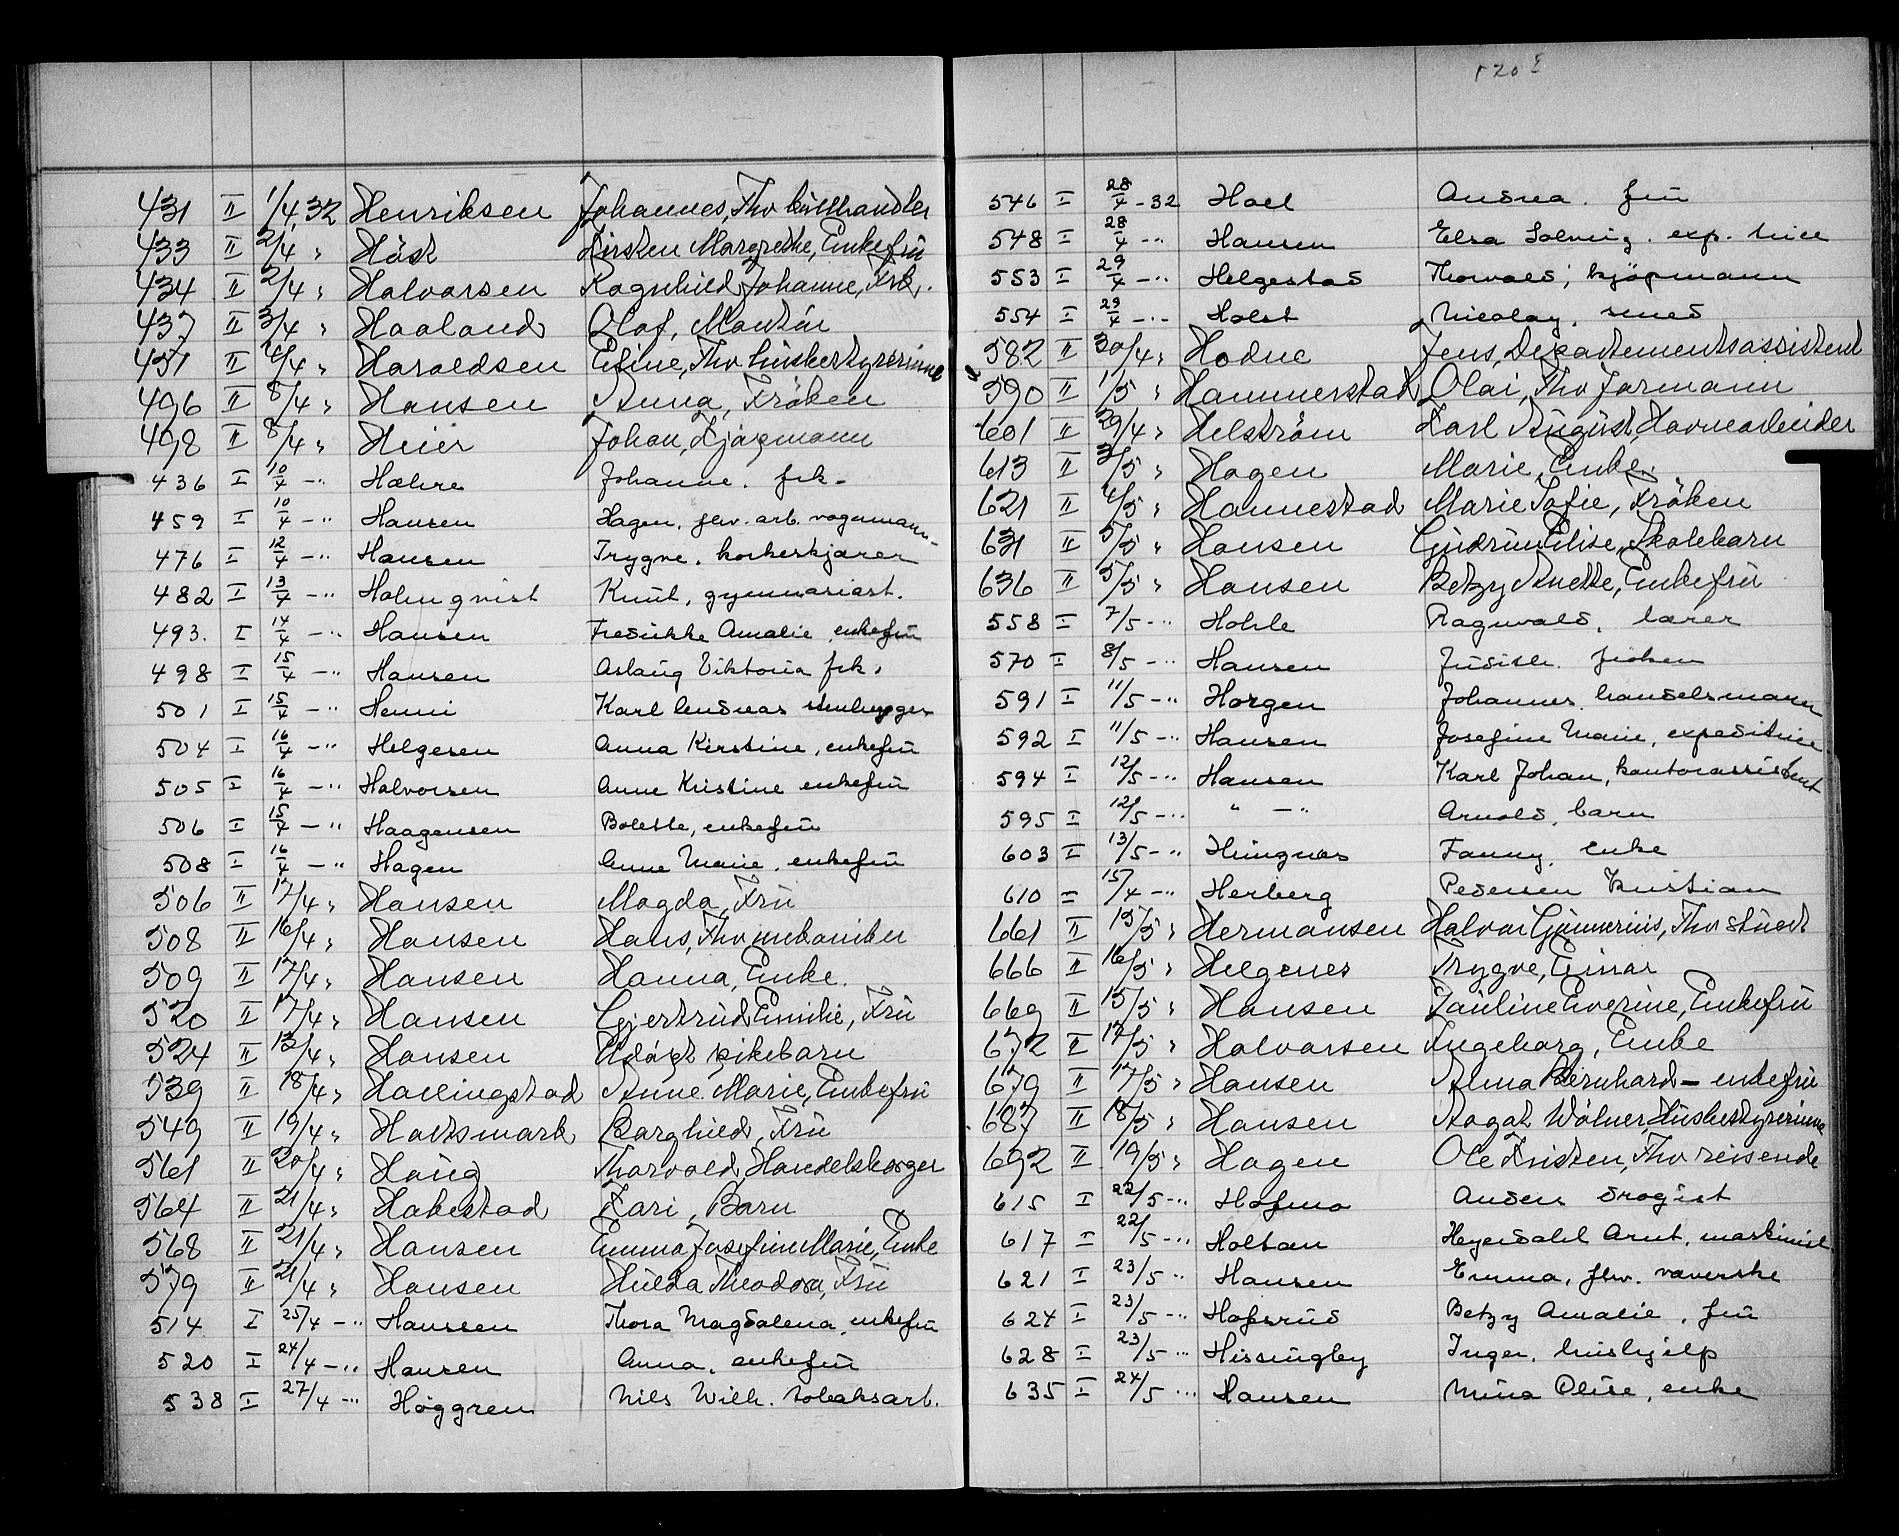 431 II 1/4 32 Henriksen Johannes, Fhv.
433 II 2/4 " Håst Kirsten Margrethe, Enkefrü
434 II 2/4 " Halvorsen Ragnhild Johanne, Frk.
437 II 3/4 " Haaland Olaf, Montör
451 II 4/4 " Haroldsen Eline, Fhv hüsbestyrerinne
496 II 8/4 " Hansen Anna, Fröken
498 II 8/4 " Heier Johan, Kjøpmann
436 I 10/4 -" Hæhre Johanne. frk.
459 I 10/4 -" Hansen Hagen, fhv. arb. vognmann
476 I 12/4 -" Hansen Trygve. korkeskjærer
482 I 13/4 -" Holmqvist Knut, gymnasiast.
493. I 14/4 -" Hansen Fredrikke Amalie enkefrü
498 I 15/4 -" Hansen Aslaug Viktoria frk.
501 I 15/4 -" Henni Karl Andreas
504 I 16/4 -" Helgesen Anna Kirstine, enkefrü
505 I 16/4 -" Halvorsen Anne Kristine enkefrü
506 I 15/4 -" Haagensen Bolette, enkefrü
508 I 16/4 -" Hagen Anne Marie. enkefrü
506 II 17/4 " Hansen Magda, Frü
508 II 16/4 " Hansen Hans, Fhv mekaniker
509 II 17/4 " Hansen Hanna, Enke.
520 II 17/4 " Hansen Gjertrud Emilie, Frü
524 II 13/4 " Hansen Udöpt pikebarn
539 II 18/4 " Hallingstad Anne Marie, Enkefrü
549 II 19/4 " Holtsmark Borghild, Frü
561 II 20/4 " Haug Thorvald, Handelsborger
564 II 21/4 " Hakestad Kari, Barn
568 II 21/4 " Hansen Emma Josefine Marie, Enke
579 II 21/4 " Hansen Hulda Theodora, Frü
514 I 25/4 -" Hanssen Thora Magdalena, enkefrü
520 I 24/4 -" Hansen Anna, enkefrü
538 I 27/4 -" Höggren Nils Wilh. tobaksarb.
520 I
546 I 28/4 -32 Hoel Andrea. frü
548 I 28/4 -" Hansen Elsa Solveig. exp. trice
553 I 29/4 -" Helgestad Thorvald, kjöpmann
554 I 29/4 -" Holst Nicolay, smed
582 II 30/4 " Hodne Jens, Departementsassistent
590 II 1/5 " Hammerstad Olai, Fhv formann
601 II 29/4 " Helström Karl August, Havnearbeider
613 II 3/5 " Hagen Marie, Enke.
621 II 4/5 " Hannestad Marie Sofie, Fröken
631 II 5/5 " Hansen Gudrun Elise, Skolebarn
636 II 5/5 " Hansen Betzy Anette, Enkefrü
558 I 7/5 -" Hohle Ragnvald, lærer
570 I 8/5 -" Hansen Judith. fröken
591 I 11/5 -" Horgen Johannes. handelsmann
592 I 11/5 -" Hansen Josefine Marie, expeditrice
594 I 12/5 -" Hansen Karl Johan, kontorassistent
595 I 12/5 -" " -" Arnold, barn
603 I 13/5 -" Hungnes Fanny, enke
610 I 15/4 -" Herberg Pedersen Kristian
661 II 15/5 " Hermansen Halvor Gunnerius, Fhv stuert
666 II 16/5 " Helgenes Trygve, Einar
669 II 15/5 " Hansen Pauline Everine, Enkefrü
672 II 17/5 " Halvorsen Ingeborg, Enke
679 II 17/5 " Hansen Alma Bernhard- enkefrü
687 II 18/5 " Hansen Aagot Wölner Hüsbestyrerinne
692 II 19/5 " Hagen Ole Kristen, Fhv reisende
615 I 22/5 -" Hofmo Anders drogist
617 I 22/5 -" Holtan Heyerdahl Arnt, maskinist
621 I 23/5 " Hansen Emma, fhv. væverske
624 I 23/5 -" Hofsrud Betzy Amalie, frü
628 I 23/5 -" Hissingby Inger, hüshjelp
635 I 24/5 -" Hansen Mina Olise, enke